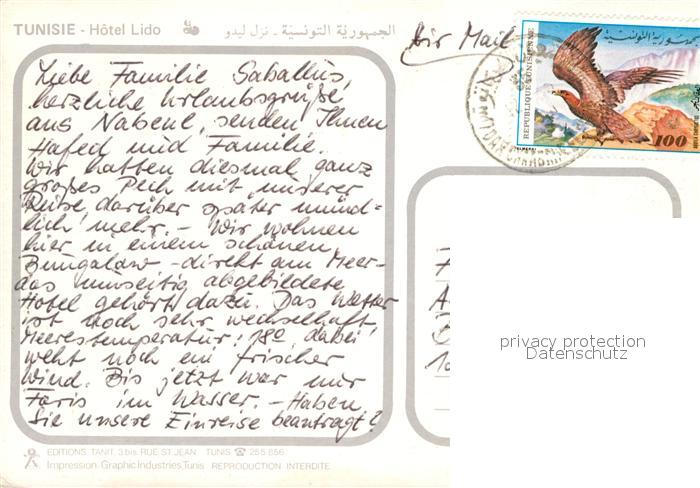 TUNISIE - Hôtel Lido
الجمهورية التونسية - نزل ليدو
Air Mail
REPUBLIQUE TUNISIENNE
الجمهورية التونسية
100
Liebe Familie Saballus,
herzliche Urlaubsgrüße
aus Nabeul, senden Ihnen
Hafed und Familie.
Wir hatten diesmal ganz
großes Pech mit unserer
Reise, darüber später münd=
lich mehr. - Wir wohnen
hier in einem schönen
Bungalow - direkt am Meer -
das umseitig abgebildete
Hotel gehört dazu. Das Wetter
ist noch sehr wechselhaft,
Meerestemperatur: 18°, dabei
weht noch ein frischer
Wind. Bis jetzt war nur
Faris im Wasser. - Haben
Sie unsere Einreise beantragt?
privacy protection
Datenschutz
EDITIONS TANIT, 3 bis RUE ST JEAN TUNIS ☎ 255 656
Impression: Graphic Industries, Tunis REPRODUCTION INTERDITE